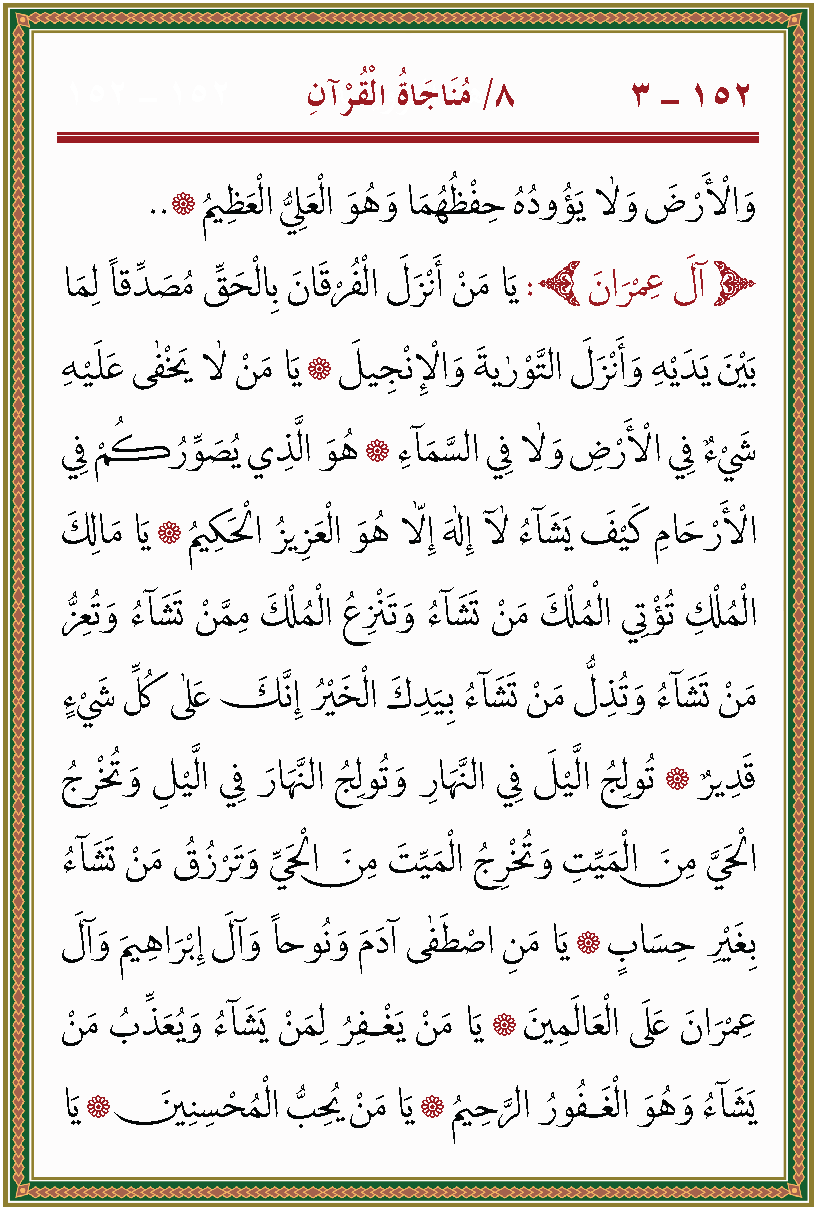 ١٥٢ ــ ٣ ٨/ مُنَاجَاةُ الْقُرْآنِ
وَالْأَرْضَ وَلَا يَؤُودُهُ حِفْظُهُمَا وَهُوَ الْعَلِيُّ الْعَظِيمُ ۞..
﴿ آلَ عِمْرَانَ ﴾: يَا مَنْ أَنْزَلَ الْفُرْقَانَ بِالْحَقِّ مُصَدِّقاً لِمَا
بَيْنَ يَدَيْهِ وَأَنْزَلَ التَّوْرٰيةَ وَالْإِنْجِيلَ ۞ يَا مَنْ لَا يَخْفٰى عَلَيْهِ
شَيْءٌ فِي الْأَرْضِ وَلَا فِي السَّمَآءِ ۞ هُوَ الَّذِي يُصَوِّرُكُمْ فِي
الْأَرْحَامِ كَيْفَ يَشَآءُ لَآ إِلٰهَ إِلَّا هُوَ الْعَزِيزُ الْحَكِيمُ ۞ يَا مَالِكَ
الْمُلْكِ تُؤْتِي الْمُلْكَ مَنْ تَشَآءُ وَتَنْزِعُ الْمُلْكَ مِمَّنْ تَشَآءُ وَتُعِزُّ
مَنْ تَشَآءُ وَتُذِلُّ مَنْ تَشَآءُ بِيَدِكَ الْخَيْرُ إِنَّكَ عَلٰى كُلِّ شَيْءٍ
قَدِيرٌ ۞ تُولِجُ اللَّيْلَ فِي النَّهَارِ وَتُولِجُ النَّهَارَ فِي اللَّيْلِ وَتُخْرِجُ
الْحَيَّ مِنَ الْمَيِّتِ وَتُخْرِجُ الْمَيِّتَ مِنَ الْحَيِّ وَتَرْزُقُ مَنْ تَشَآءُ
بِغَيْرِ حِسَابٍ ۞ يَا مَنِ اصْطَفٰى آدَمَ وَنُوحاً وَآلَ إِبْرَاهِيمَ وَآلَ
عِمْرَانَ عَلَى الْعَالَمِينَ ۞ يَا مَنْ يَغْفِرُ لِمَنْ يَشَآءُ وَيُعَذِّبُ مَنْ
يَشَآءُ وَهُوَ الْغَفُورُ الرَّحِيمُ ۞ يَا مَنْ يُحِبُّ الْمُحْسِنِينَ ۞ يَا